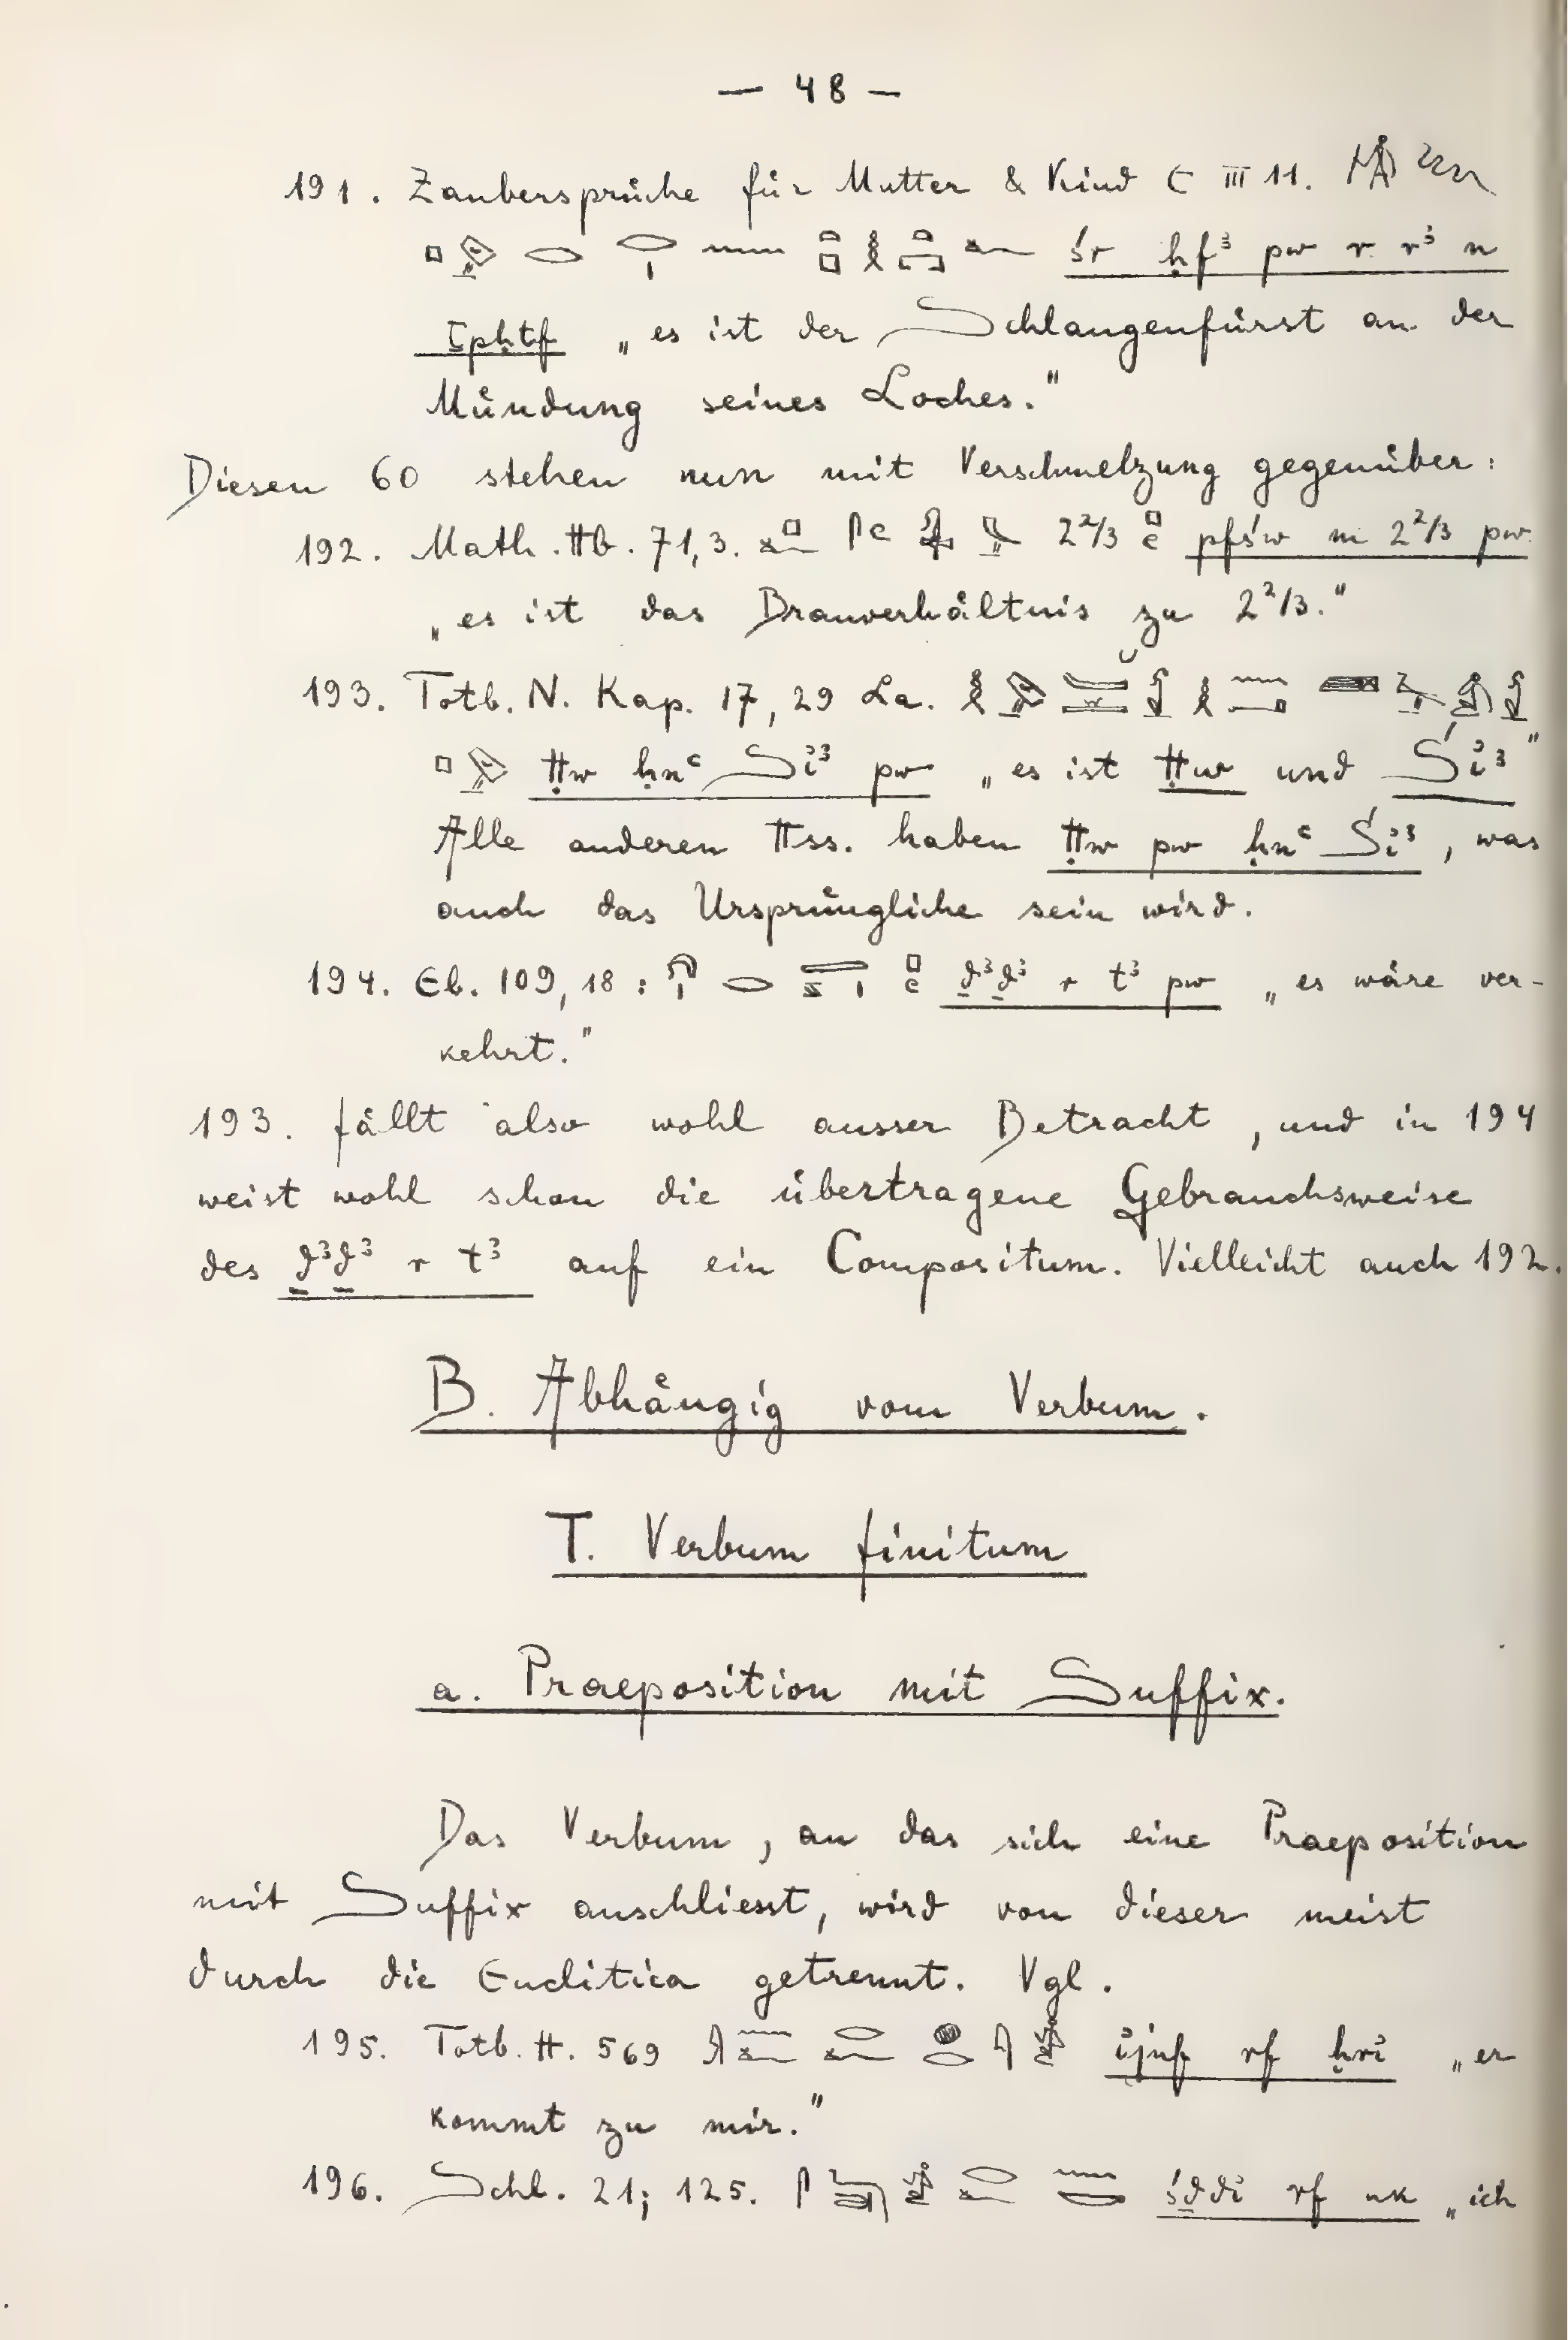 — 48 —
191. Zaubersprüche für Mutter & Kind C III 11.
śr ḥf³ pw r r³ n
ṭpḥtf „es ist der Schlangenfürst an der
Mündung seines Loches."
Diesen 60 stehen nun mit Verschmelzung gegenüber:
192. Math. Hb. 71,3. 2²/3 pfśw m 2²/3 pw
„es ist das Brauverhältnis zu 2²/3."
193. Totb. N. Kap. 17, 29 La.
Ḥw ḥnᶜ Śi³ pw „es ist Ḥw und Śi³"
Alle anderen Hss. haben Ḥw pw ḥnᶜ Śi³, was
auch das Ursprüngliche sein wird.
194. Eb. 109, 18: ḏ³ḏ³ r t³ pw „es wäre ver-
kehrt."
193. fällt also wohl ausser Betracht, und in 194
weist wohl schon die übertragene Gebrauchsweise
des ḏ³ḏ³ r t³ auf ein Compositum. Vielleicht auch 192.
B. Abhängig vom Verbum.
I. Verbum finitum
a. Praeposition mit Suffix.
Das Verbum, an das sich eine Praeposition
mit Suffix anschliesst, wird von dieser meist
durch die Enclitica getrennt. Vgl.
195. Totb. H. 569 ijnf rf ḥri „er
kommt zu mir."
196. Schl. 21; 125. śḏdi rf nk „ich